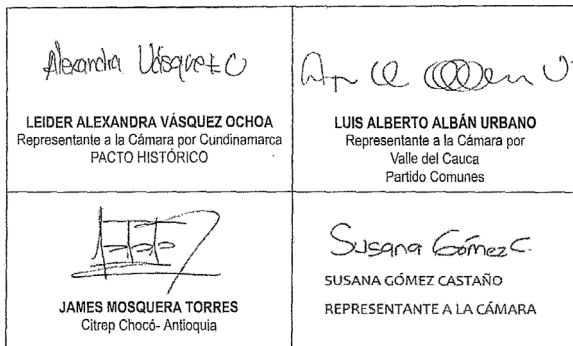 Alexandra Vásquez O
LEIDER ALEXANDRA VÁSQUEZ OCHOA
Representante a la Cámara por Cundinamarca
PACTO HISTÓRICO
LUIS ALBERTO ALBÁN URBANO
Representante a la Cámara por
Valle del Cauca
Partido Comunes
JAMES MOSQUERA TORRES
Citrep Chocó- Antioquia
Susana Gómez C.
SUSANA GÓMEZ CASTAÑO
REPRESENTANTE A LA CÁMARA